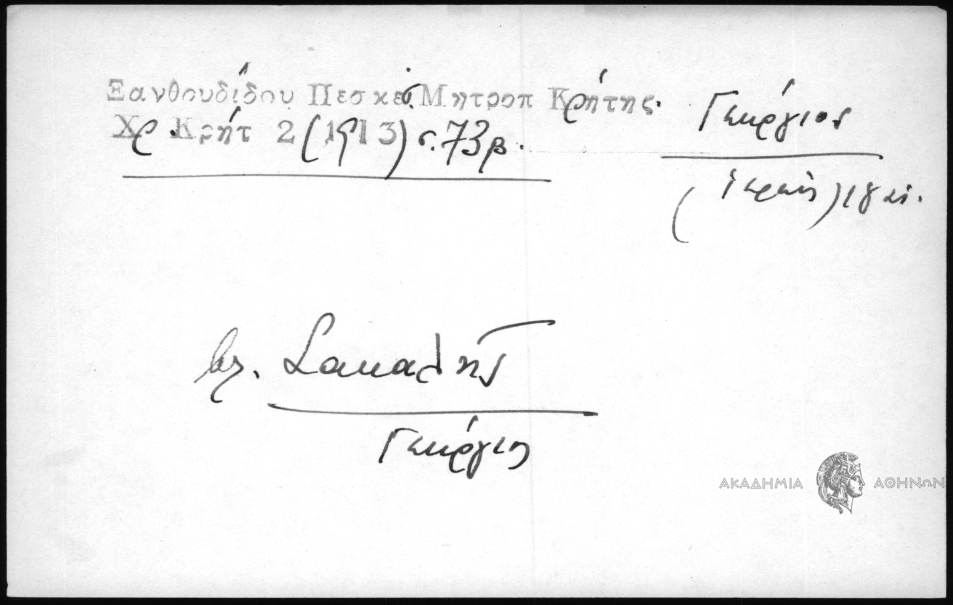 Ξανθουδίδου Πεσκέσ. Μητροπ Κρήτης.
Χρ. Κρήτ 2 (1913) σ. 73β.
Γεώργιος
(ἱερεὺς)
βλ. Σακαλῆς
Γεώργιος
ΑΚΑΔΗΜΙΑ ΑΘΗΝΩΝ